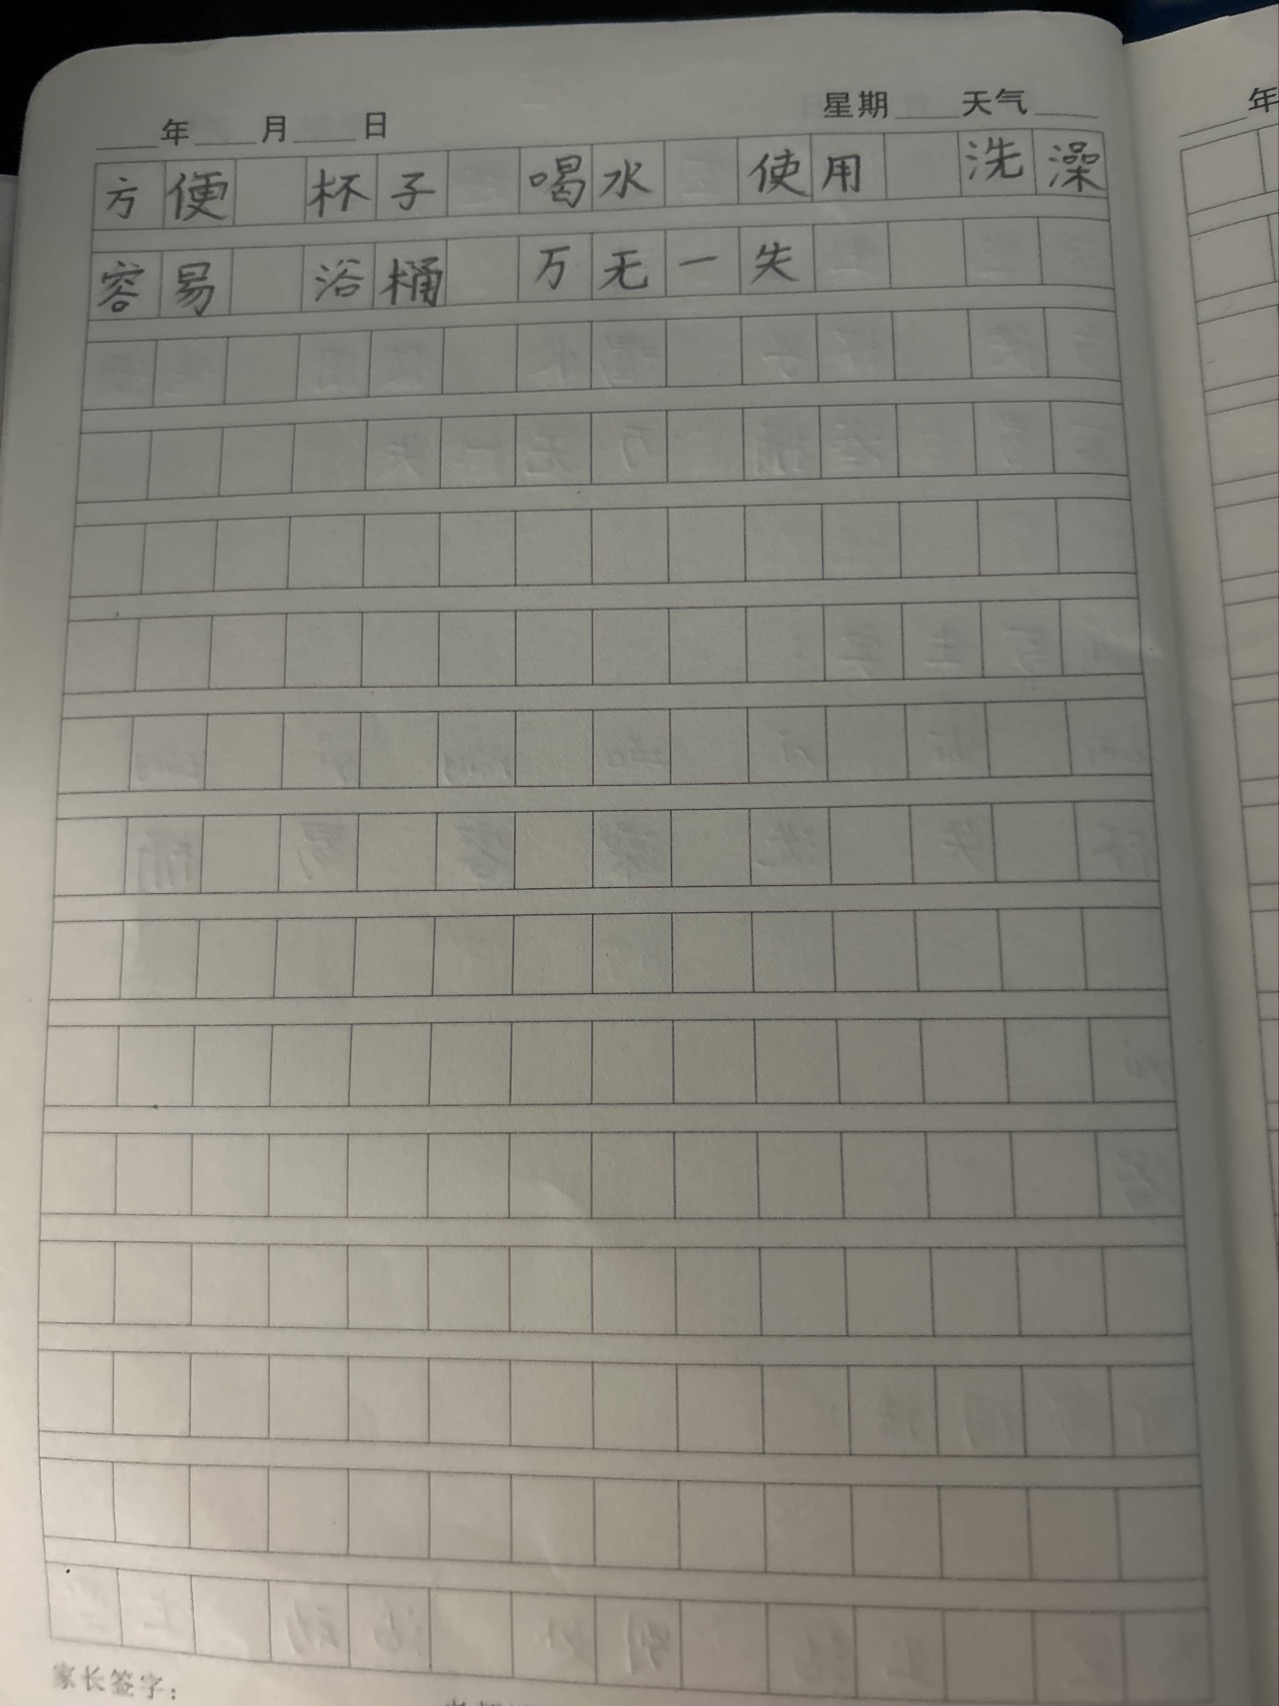 ____年____月____日 星期____天气____
年
方便 杯子 喝水 使用 洗澡
容易 浴桶 万无一失
家长签字：